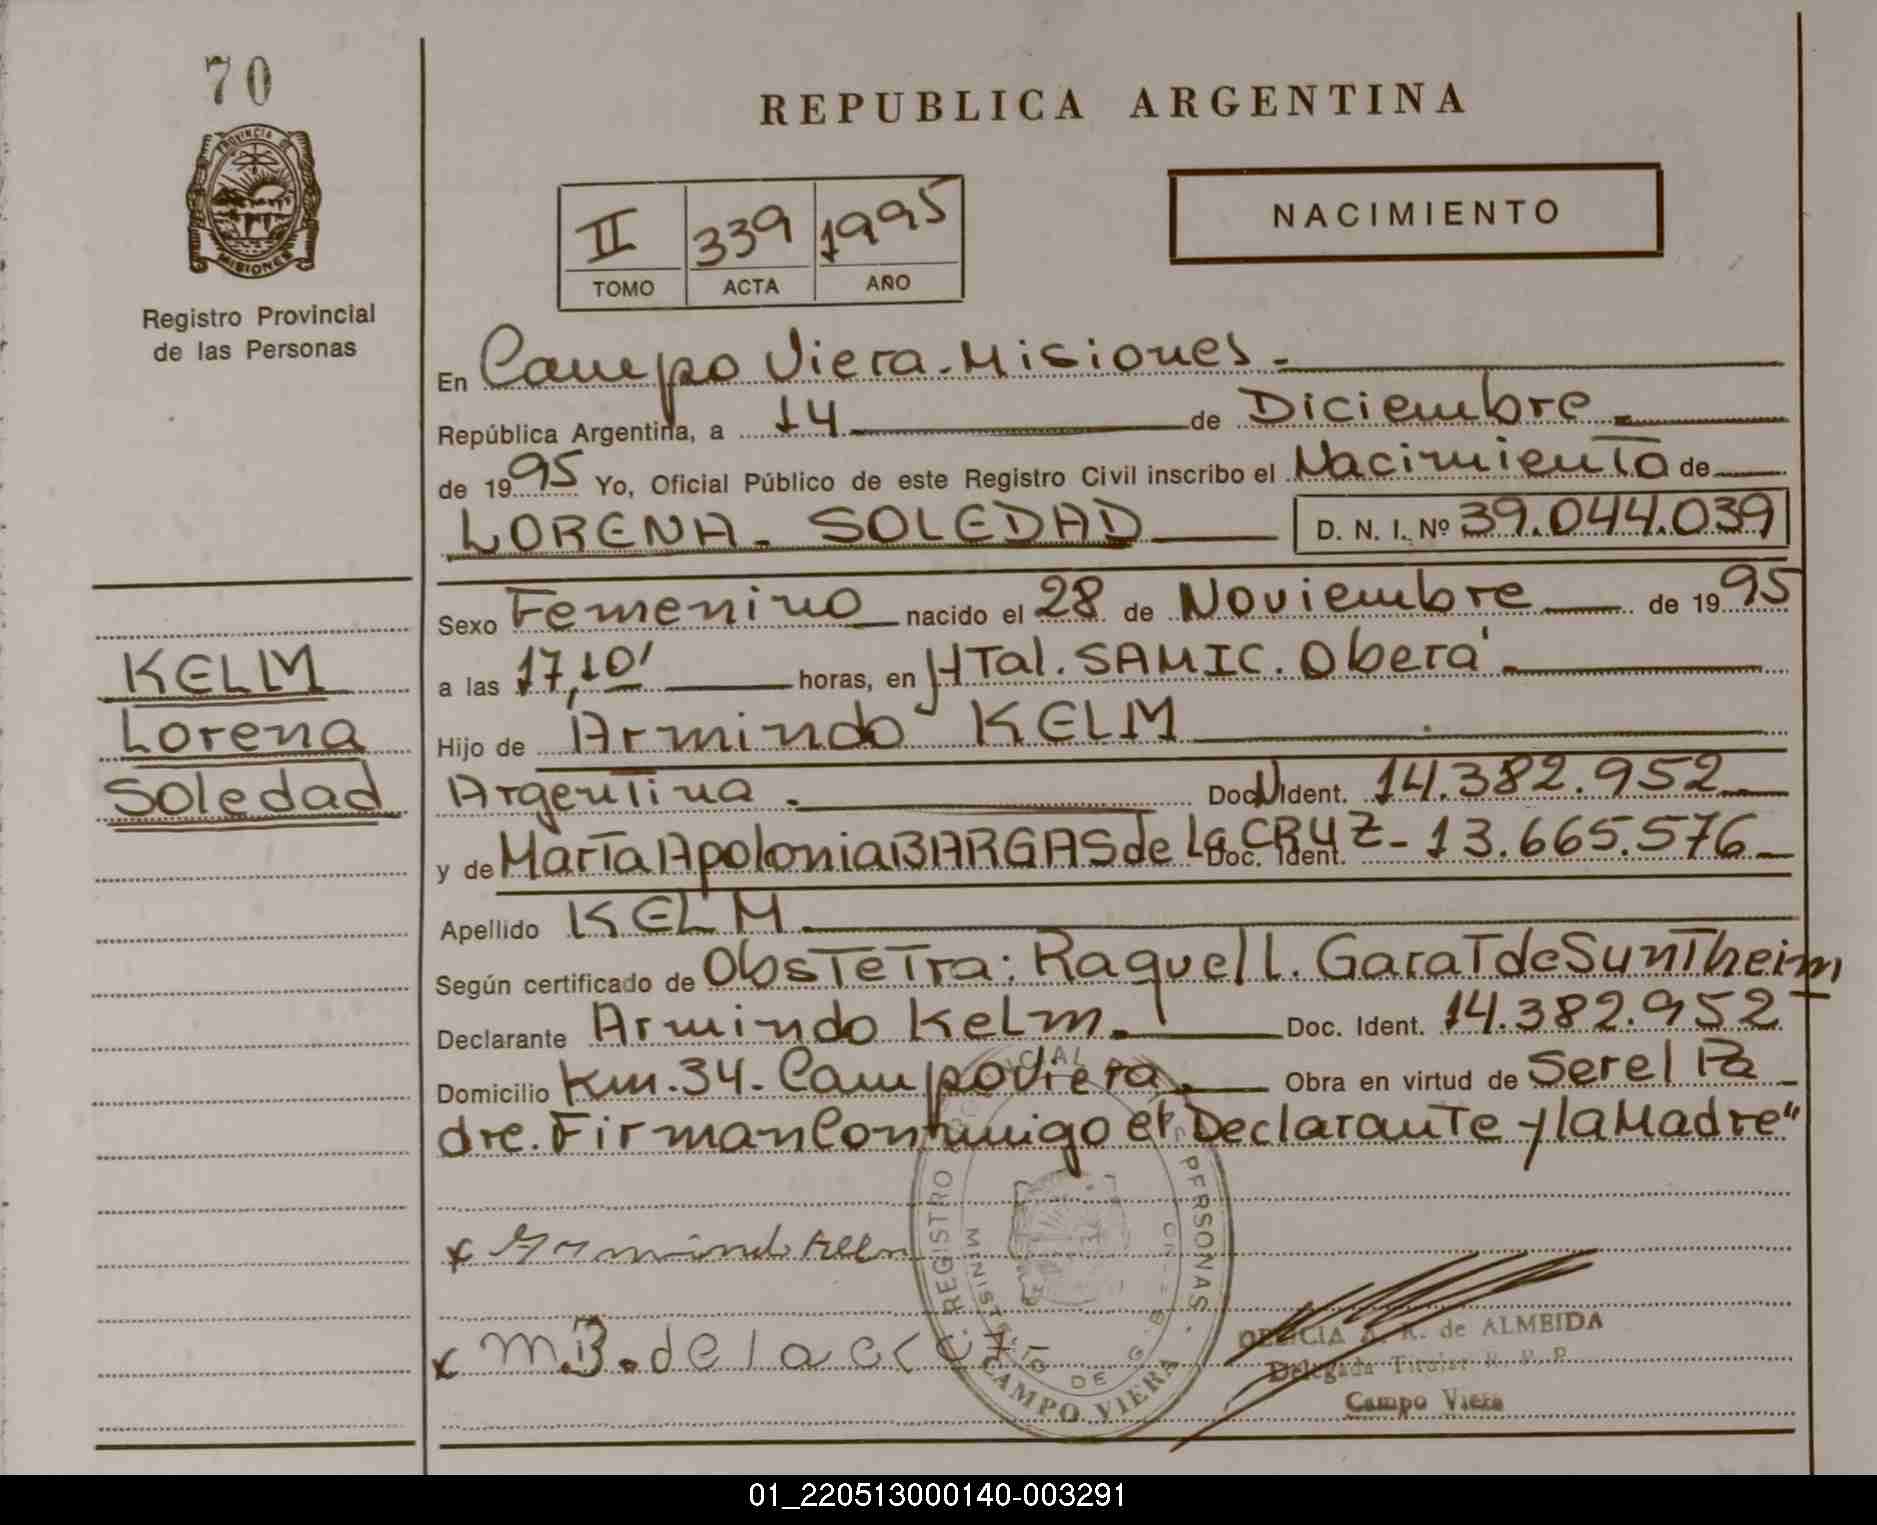 70
PROVINCIA DE
MISIONES
Registro Provincial
de las Personas
REPUBLICA ARGENTINA
II 339 1995
TOMO ACTA AÑO
NACIMIENTO
En Campo Viera. Misiones.
República Argentina, a 14 de Diciembre.
de 1995 Yo, Oficial Público de este Registro Civil inscribo el Nacimiento de
LORENA. SOLEDAD D. N. I. Nº 39.044.039
Sexo Femenino nacido el 28 de Noviembre de 1995
a las 17,10' horas, en HTal. SAMIC. Oberá.
Hijo de Armindo KELM
Argentina. Doc. N Ident. 14.382.952
y de María Apolonia BARGAS de La CRUZ - Doc. Ident. 13.665.576
Apellido KELM
Según certificado de Obstetra: Raquel L. Garat de Suntheim
Declarante Armindo Kelm. Doc. Ident. 14.382.952
Domicilio Km. 34. Campo Viera. Obra en virtud de Ser el Pa
dre. Firman Conmigo el Declarante y la Madre"
KELM
Lorena
Soledad
x Armindo Kelm
x M.B. de la cruz
REGISTRO PERSONAS.
DE G. B.
CAMPO VIERA
A. R. de ALMEIDA
Delegada Titular R. P. P.
Campo Viera
01_220513000140-003291